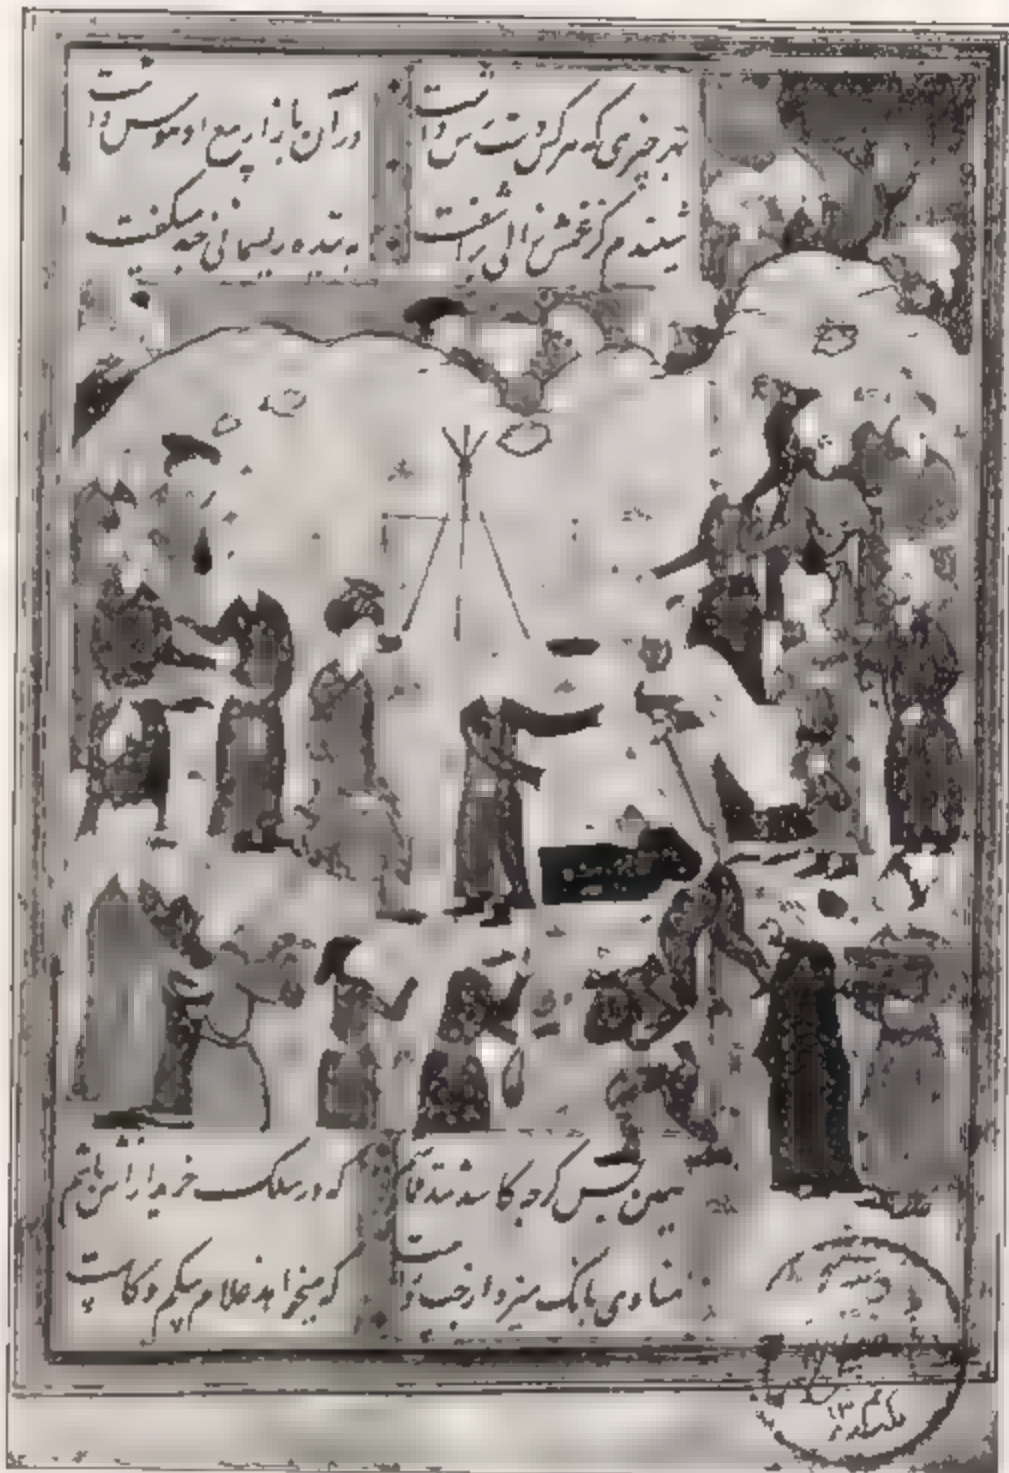 بهر چیزی که هر کس دست رس داشت
در آن بازار بیع او هوس داشت
شنیدم کز غمش زالی بر آشفت
تنیده ریسمانی چند میگفت
همین بس گرچه کاسد قماشم
که در سلک خریدارانش باشم
منادی بانک میزد از چپ و راست
که میخواهد غلامی بی کم و کاست